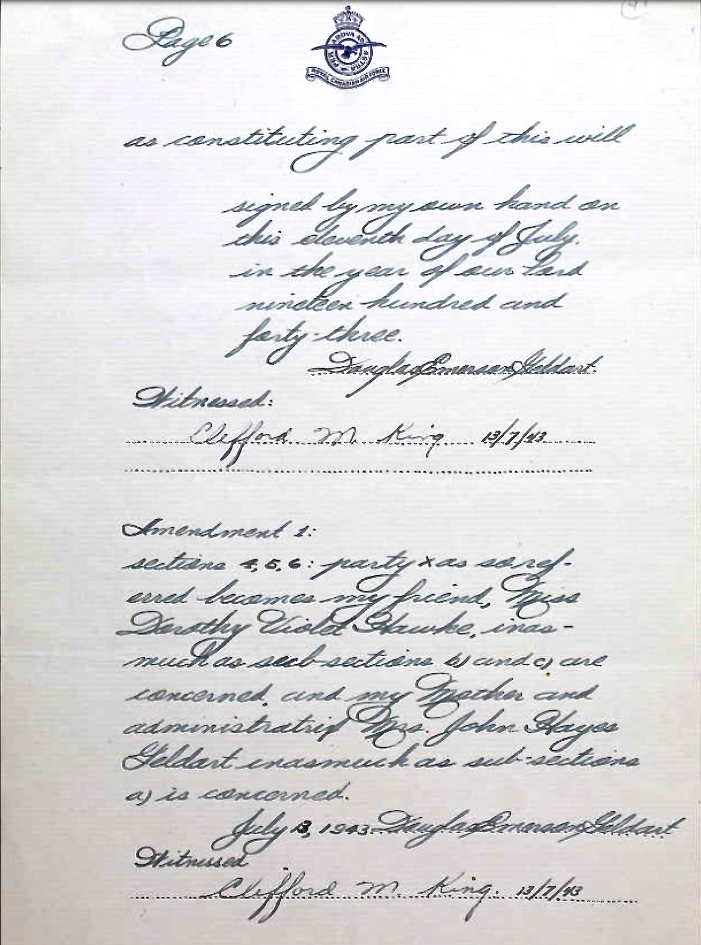 Page 6
PER ARDUA AD ASTRA
ROYAL CANADIAN AIR FORCE
as constituting part of this will
signed by my own hand on
this eleventh day of July,
in the year of our Lord
nineteen hundred and
forty-three.
Douglas Emerson Geldart.
Witnessed:
Clifford M. King 13/7/43
Amendment 1:
sections 4, 5, 6: party x as so ref-
erred becomes my friend, Miss
Dorothy Violet Hawke, inas-
much as sub-sections b) and c) are
concerned, and my Mother and
administratrix Mrs. John Hayes
Geldart inasmuch as sub-sections
a) is concerned.
July 13, 1943 Douglas Emerson Geldart
Witnessed
Clifford M. King. 13/7/43